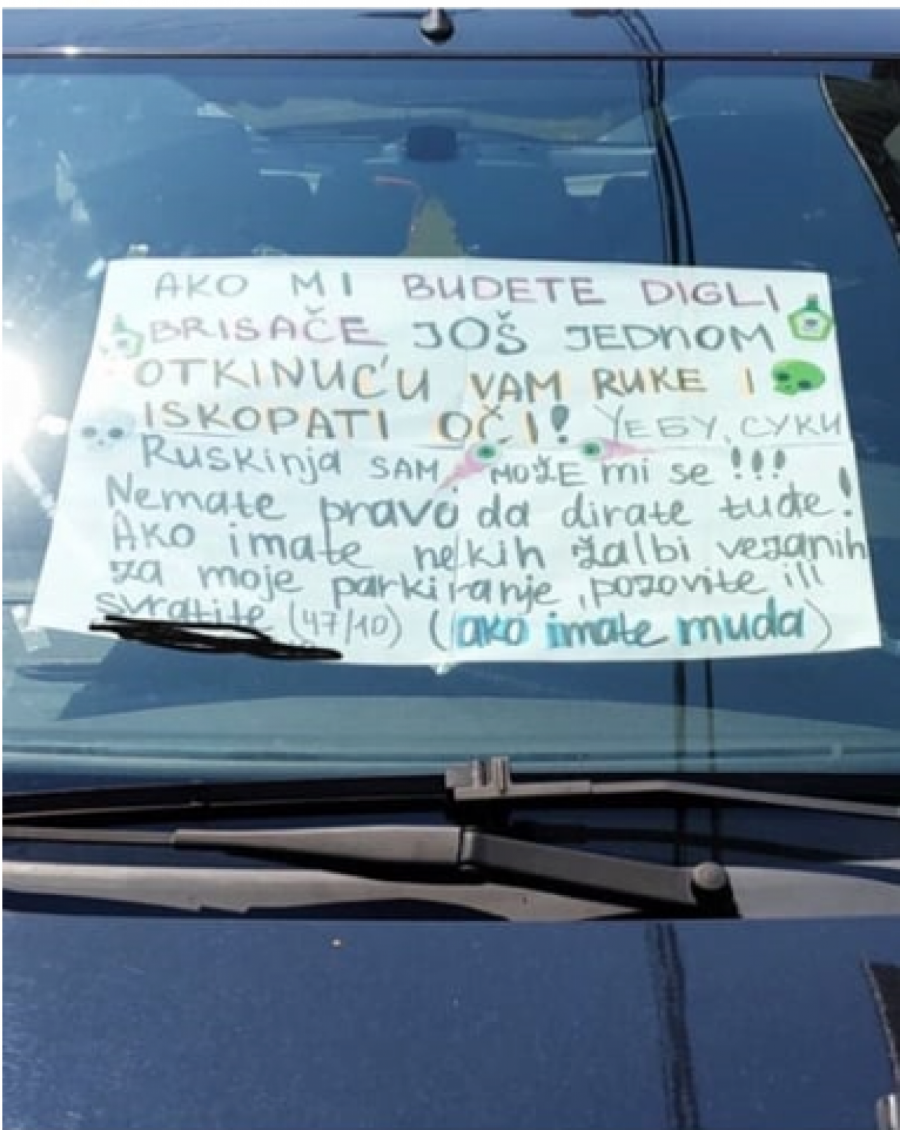 AKO MI BUDETE DIGLI
BRISAČE JOŠ JEDNOM
OTKINUĆU VAM RUKE I
ISKOPATI OČI! УЕБУ, СУКИ
Ruskinja SAM, MOŽE mi se !!!
Nemate pravo da dirate tuđe!
Ako imate nekih žalbi vezanih
za moje parkiranje, pozovite ili
svratite (47/10) (ako imate muda)